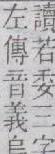 讀若委三字
左傳音義